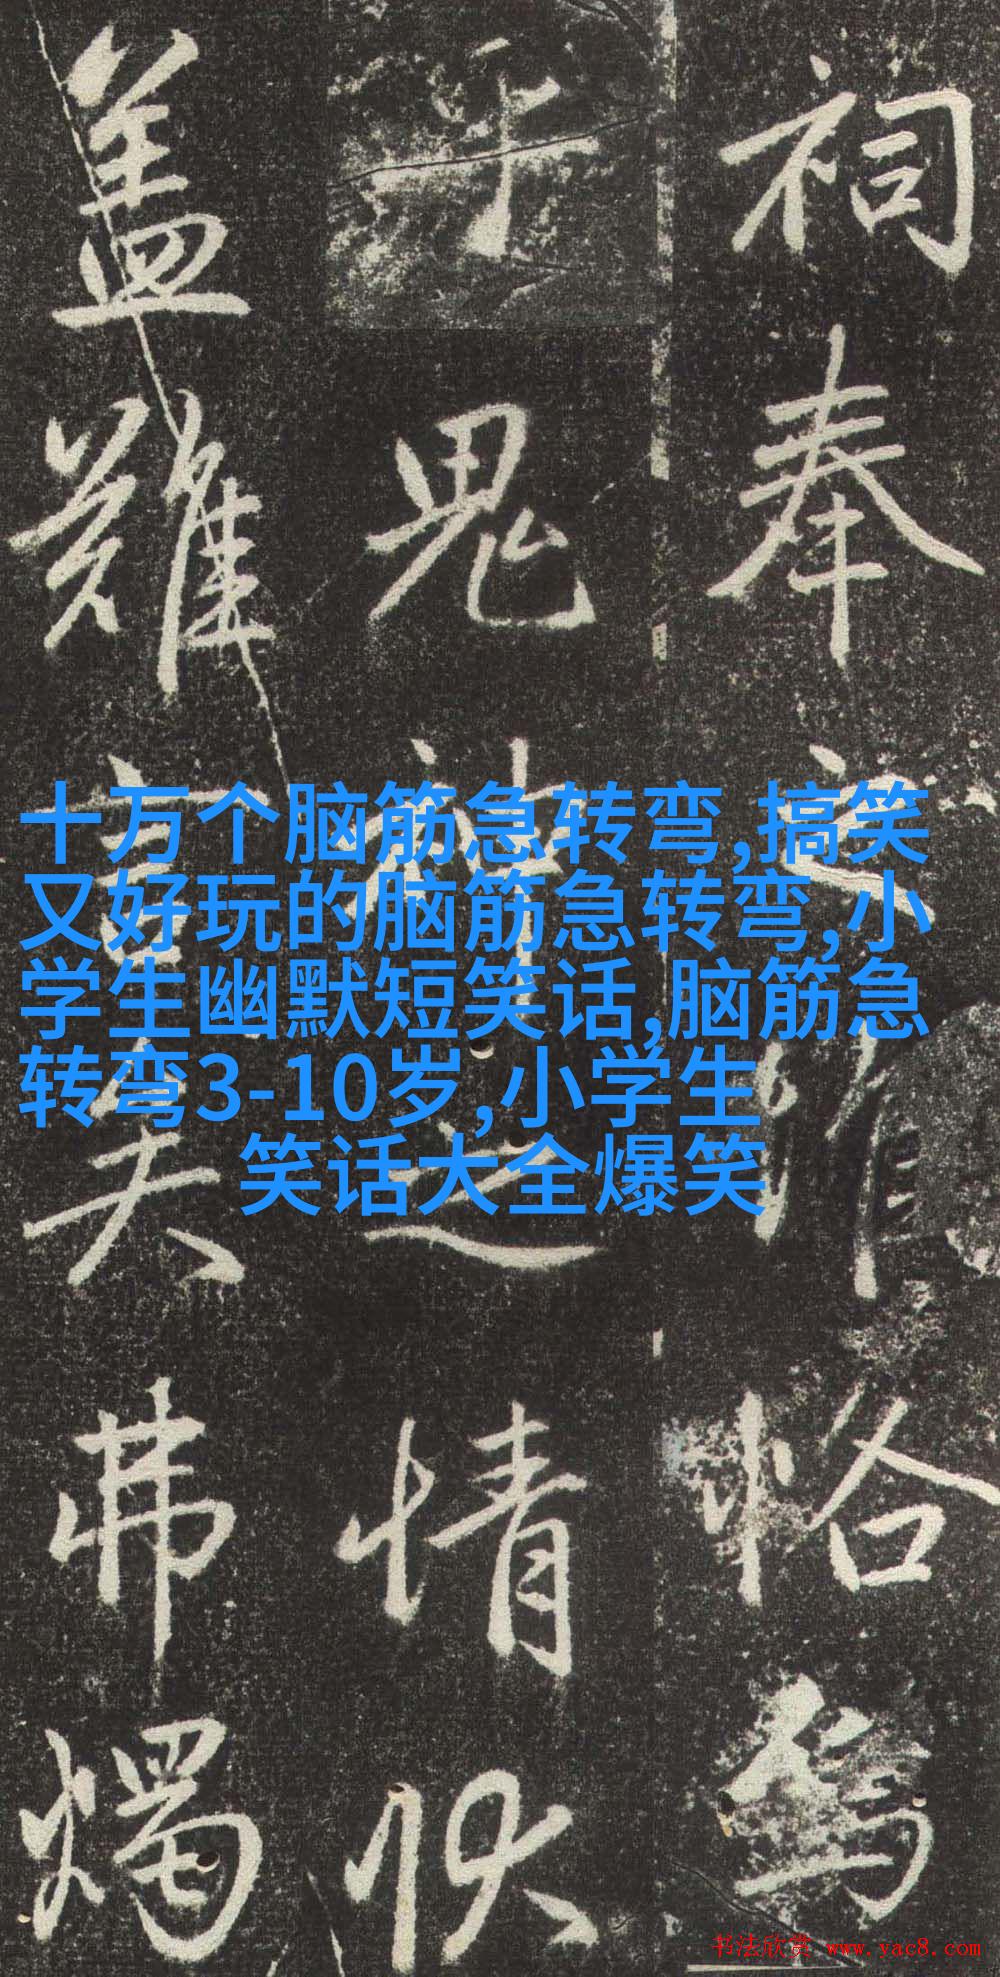 祠奉之惟恪焉
于鬼神之情状
蓋難言矣弗燭
十万个脑筋急转弯,搞笑
又好玩的脑筋急转弯,小
学生幽默短笑话,脑筋急
转弯3-10岁,小学生
笑话大全爆笑
书法欣赏 www.yac8.com